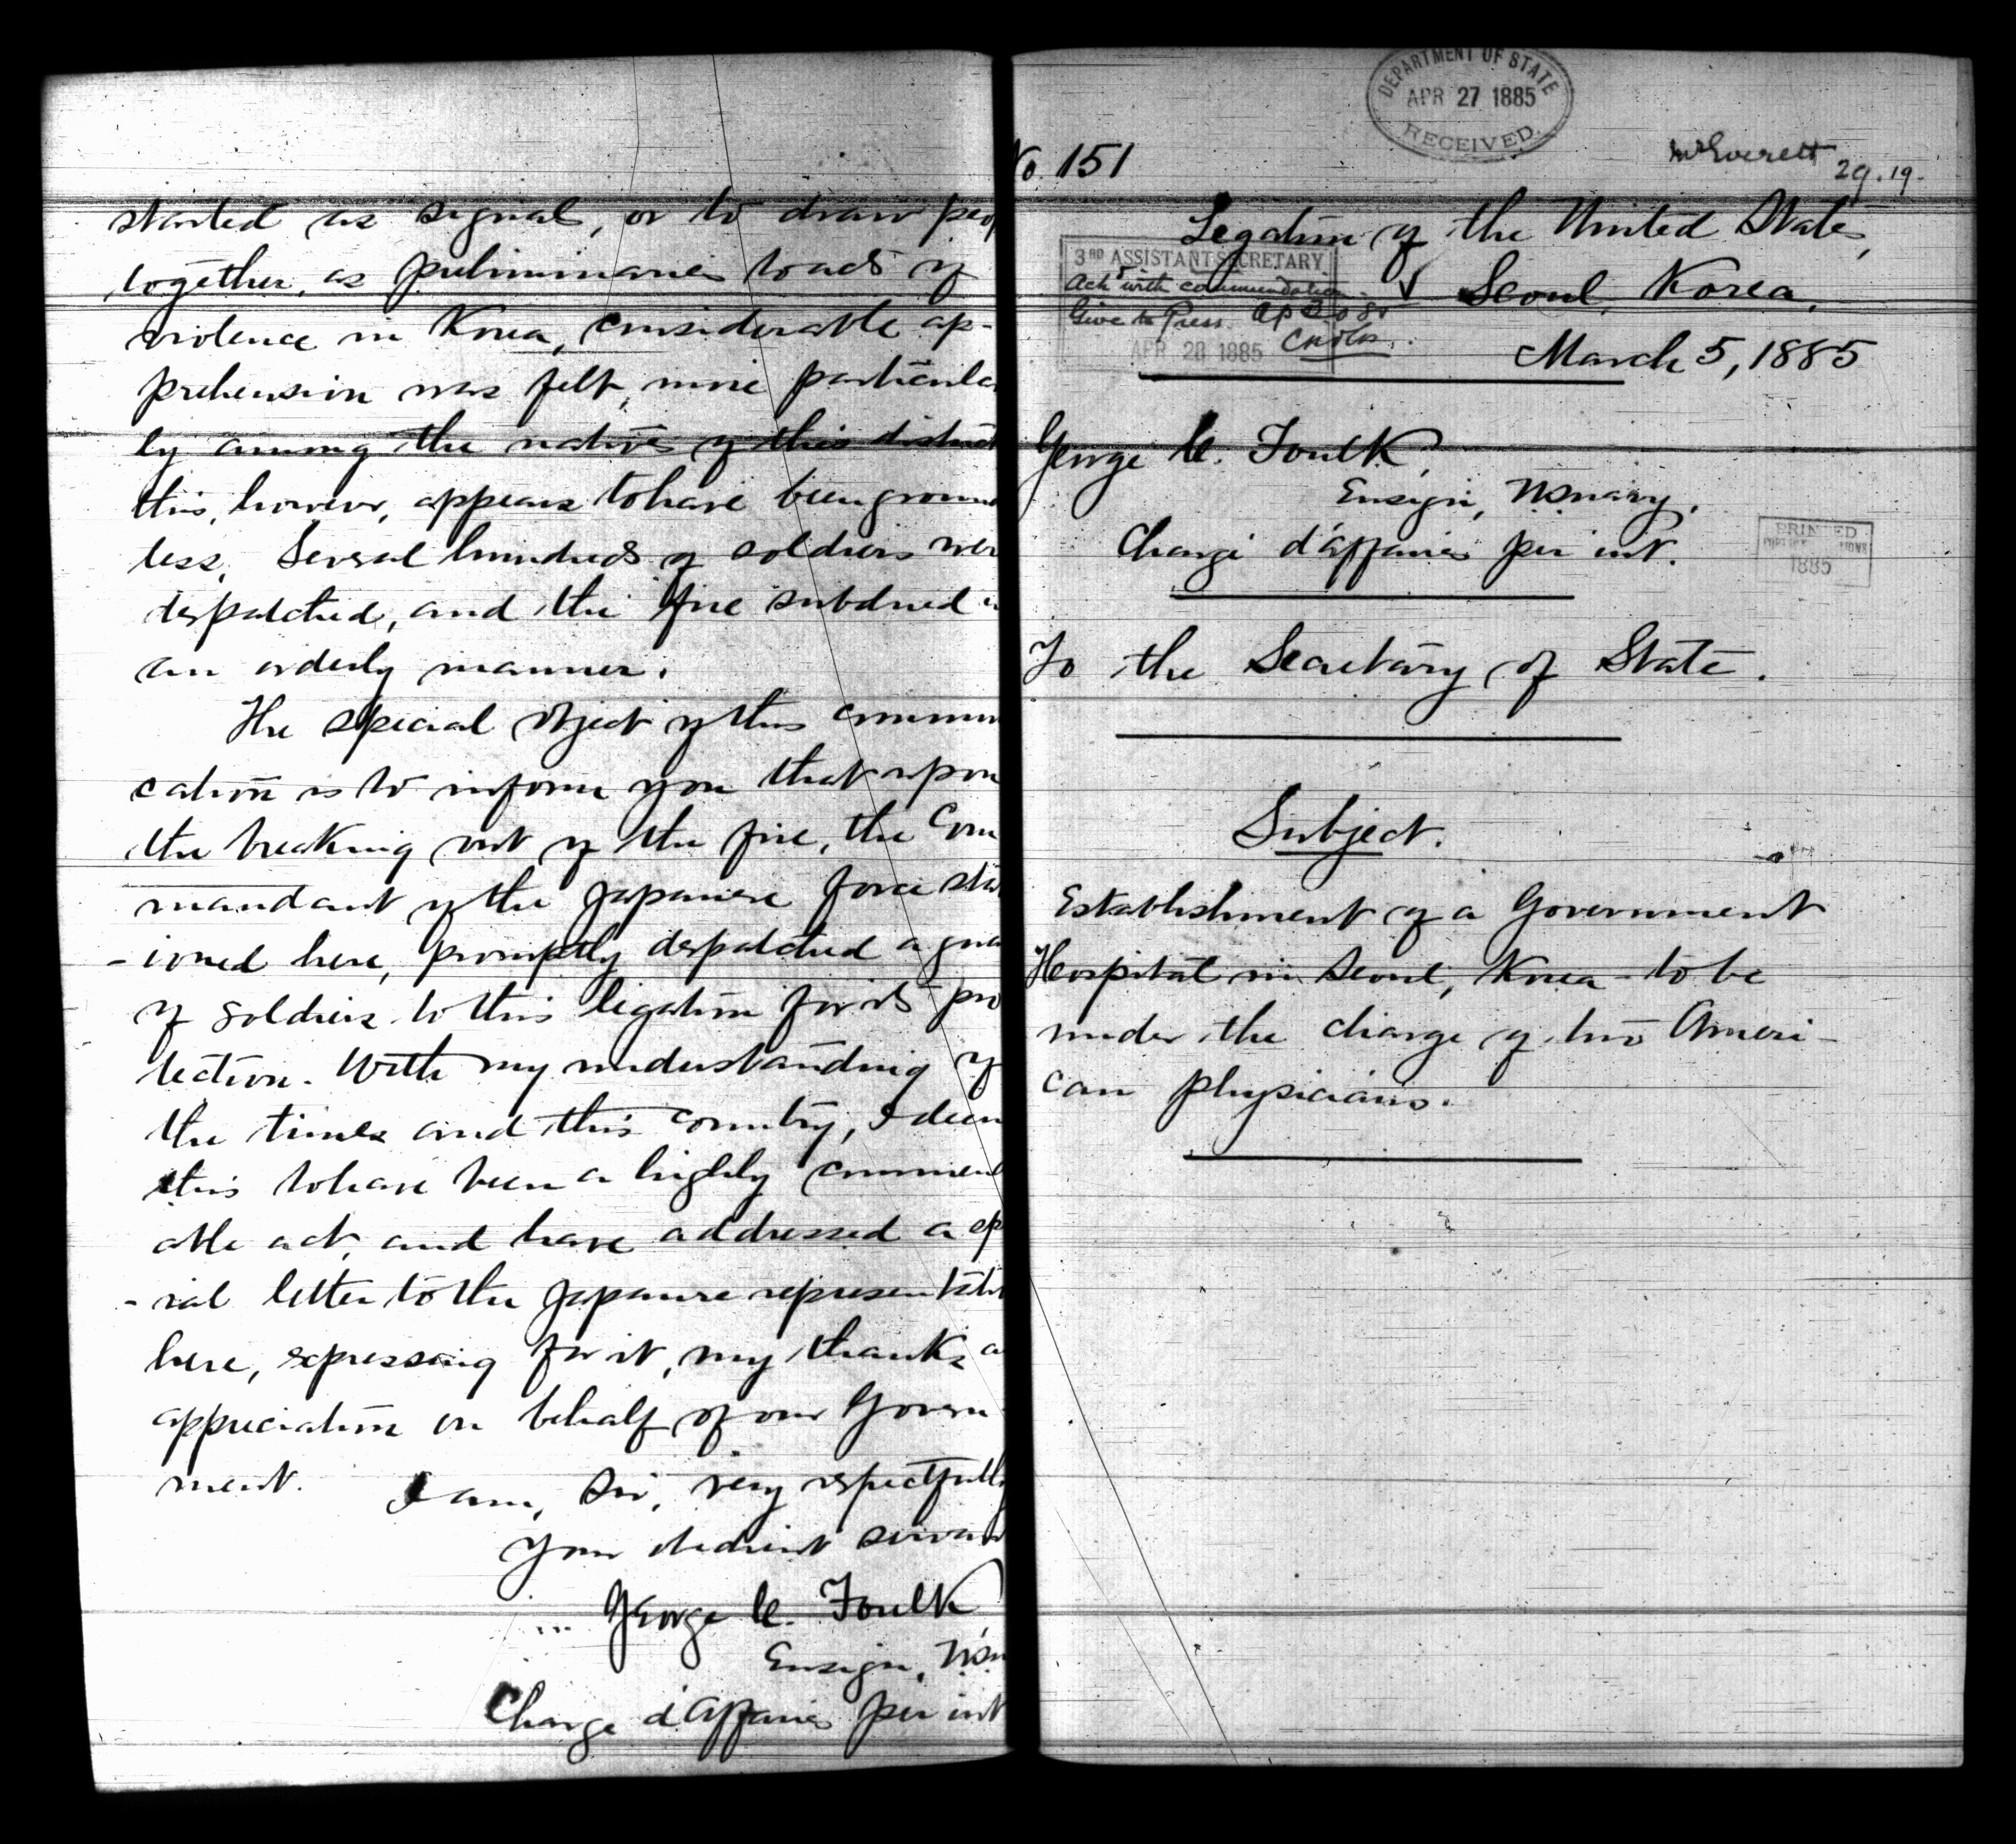 started as signal, or to draw peop
together, as preliminaries to acts of
violence in Korea, considerable ap-
prehension was felt, more particular
ly among the natives of this district
this, however, appears to have been groun
less. Several hundreds of soldiers wer
despatched, and the fire subdued i
an orderly manner.
The special object of this commun
cation is to inform you that upon
the breaking out of the fire, the Com
mandant of the Japanese force sta
-ioned here, promptly despatched a gua
of soldiers to this legation for its pro
tection. With my understanding of
the times and this country, I deem
this to have been a highly commend
able act, and have addressed a sp
-cial letter to the Japanese representativ
here, expressing for it, my thanks a
appreciation on behalf of our Govern
ment. I am, Sir, very respectfully
Your obedient servant
George C. Foulk
Ensign, USN
Charge d'Affaires per int
DEPARTMENT OF STATE
APR 27 1885
RECEIVED.
No. 151
Mr Everett
29.19.
Legation of the United States,
Seoul, Korea,
March 5, 1885
3RD ASSISTANT SECRETARY
Ack with commendation
Give to Press.
APR 28 1885
George C. Foulk,
Ensign, USNavy,
Chargé d'affaires per int.
PRINTED
1885
To the Secretary of State.
Subject.
Establishment of a Government
Hospital in Seoul, Korea - to be
under the charge of two Ameri-
can physicians.